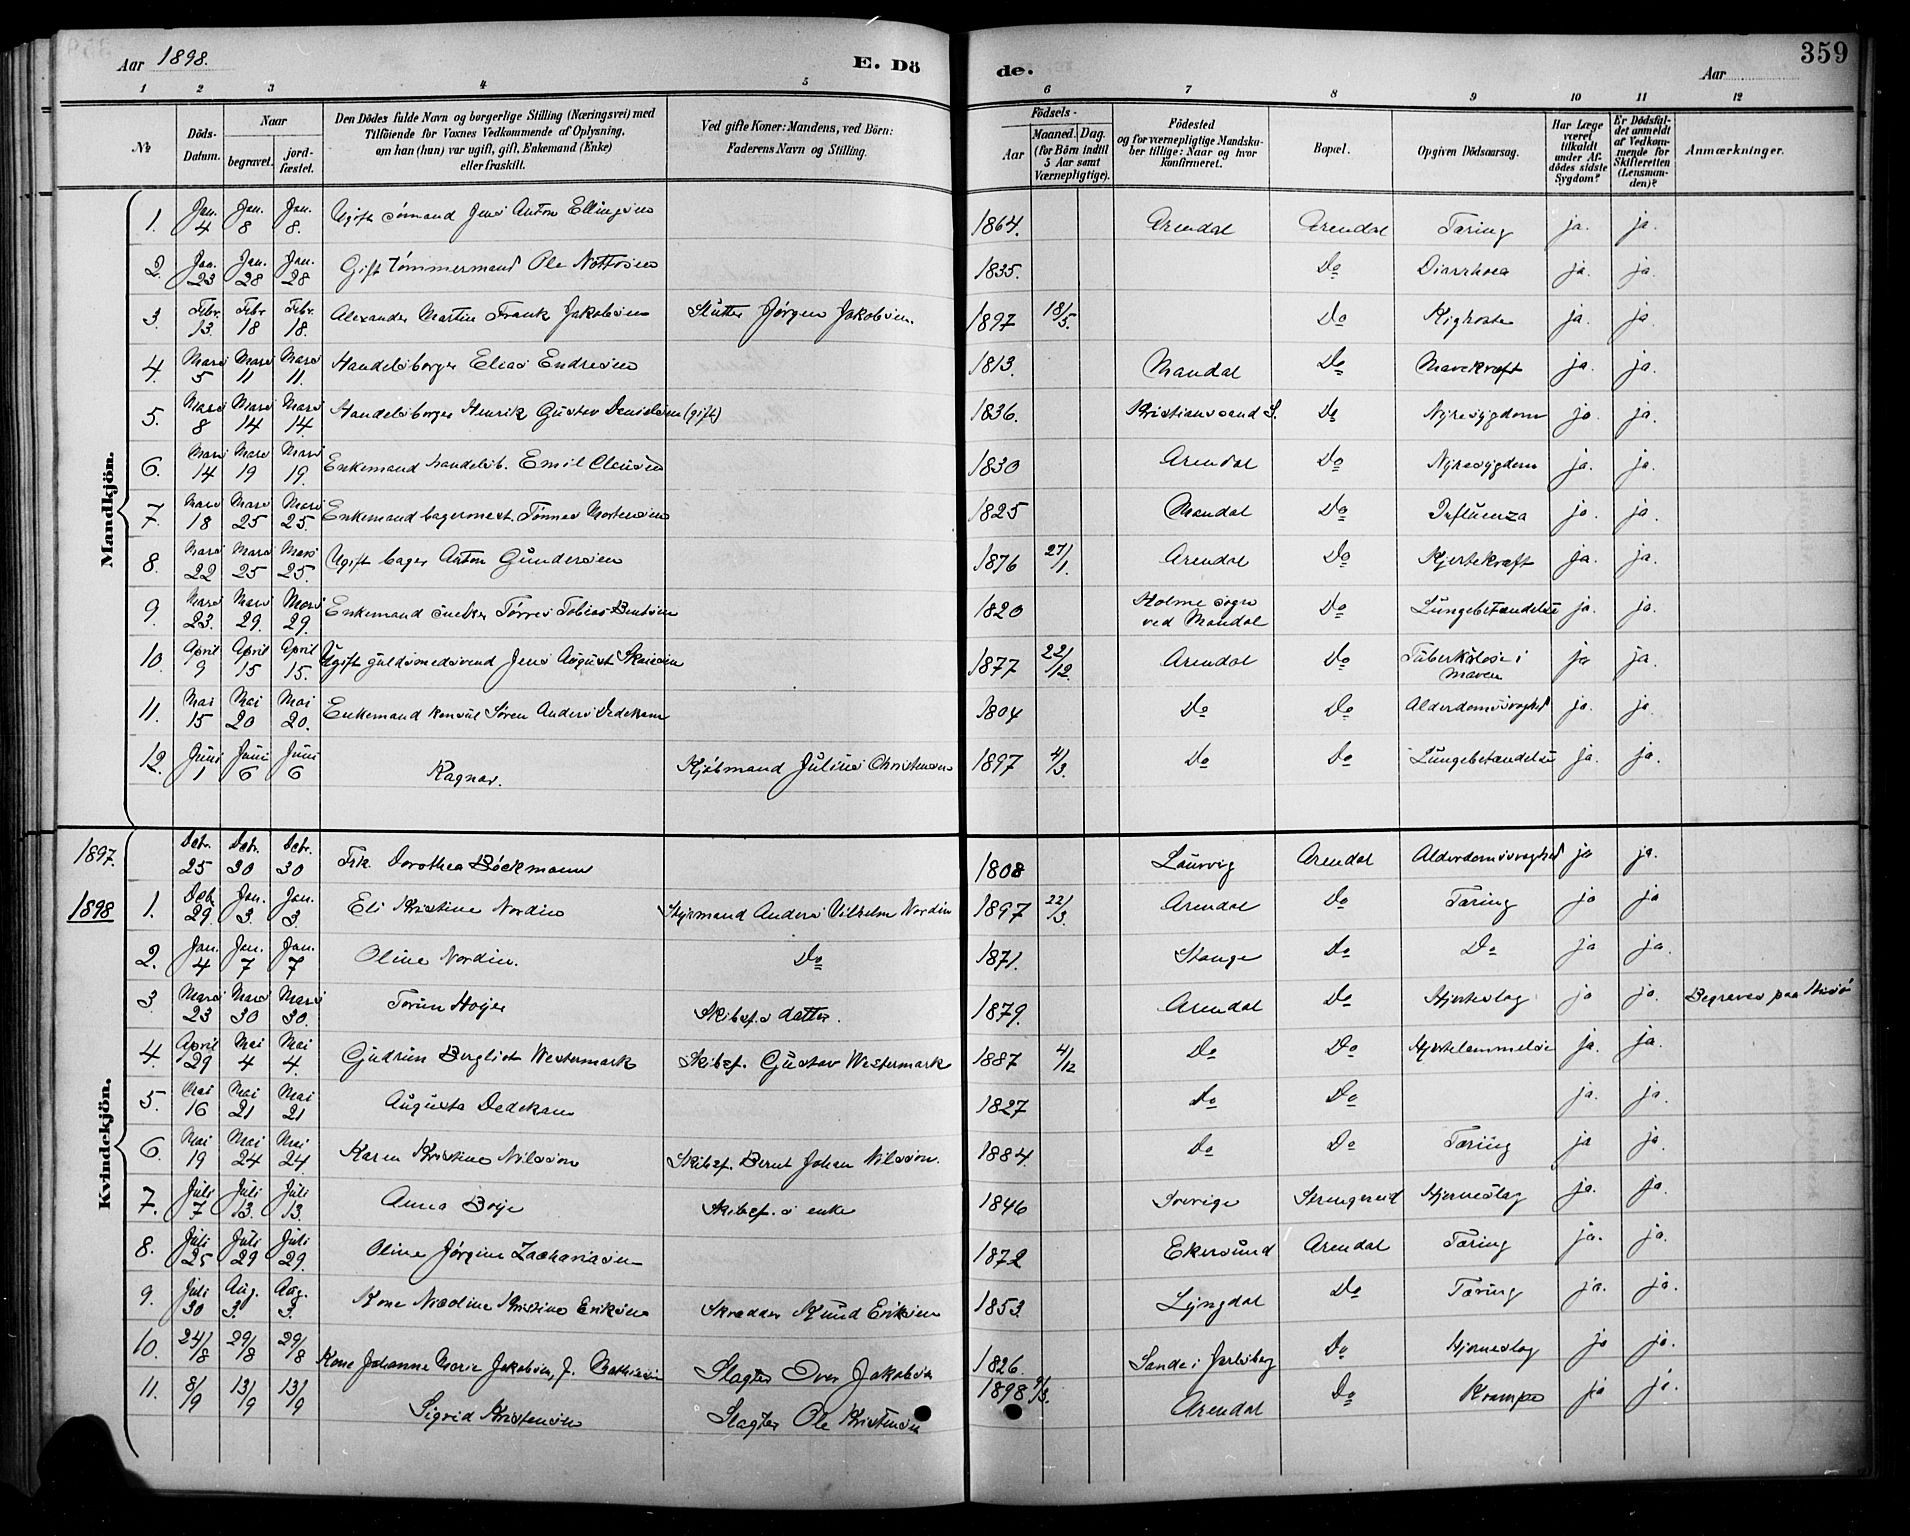 Aar 1898.
E. Dö
de.
Aar
359
1 2 3 4 5 6 7 8 9 10 11 12
No
Döds-Datum.
Naar
begravet.
jord-fæstet.
Den Dödes fulde Navn og borgerlige Stilling (Næringsvei) med
Tilföiende for Voxnes Vedkommende af Oplysning,
om han (hun) var ugift, gift, Enkemand (Enke)
eller fraskilt.
Ved gifte Koner: Mandens, ved Börn:
Faderens Navn og Stilling.
Födsels-
Aar
Maaned. Dag.
(for Börn indtil
5 Aar samt
Værnepligtige).
Födested
og for værnepligtige Mandska-
ber tillige: Naar og hvor
konfirmeret.
Bopæl.
Opgiven Dödsaarsag.
Har Læge
været
tilkaldt
under Af-
dödes sidste
Sygdom?
Er Dödsfal-
det anmeldt
af Vedkom-
mende for
Skifteretten
(Lensman-
den)?
Anmærkninger.
Mandkjön.
1. Jan. 4 Jan. 8 Jan. 8. Ugift sømand Jens Anton Ellingsen 1864. Arendal Arendal Tæring ja. ja.
2. Jan. 23 Jan. 28 Jan. 28 Gift tømmermand Ole 1835. Do Diarrhoea ja. ja.
3. Febr. 13 Febr. 18 Febr. 18. Alexander Martin Frank Jakobsen Jørgen Jakobsen. 1897 18/5. Do Kighoste ja. ja.
4. Mars 5 Mars 11 Mars 11. Handelsborger Elias Endresen 1813. Mandal Do Mavekræft ja. ja.
5. Mars 8 Mars 14 Mars 14. Handelsborger Henrik Gustav Danielsen (gift) 1836. Kristianssand S. Do Nyresygdom ja. ja.
6. Mars 14 Mars 19 Mars 19. Enkemand handelsb. Emil Clausen 1830 Arendal Do Nyresygdom ja. ja.
7. Mars 18 Mars 25 Mars 25 Enkemand bagermest. Tønnes Mortensen 1825 Mandal Do Influenza ja. ja.
8. Mars 22 Mars 25 Mars 25. Ugift bager Anton Gundersen 1876 27/1. Arendal Do Kjertekræft ja. ja.
9. Mars 23. Mars 29. Mars 29. Enkemand snedker Tørres Tobias Bentsen 1820 Holme sogn ved Mandal Do Lungebetændelse ja. ja.
10. April 9 April 15 April 15. Ugift guldsmedsvend Jens August 1877 22/12. Arendal Do Tuberkulose i maven ja ja.
11. Mai 15 Mai 20 Mai 20. Enkemand konsul Søren Anders Dedekam 1804 Do Do Alderdomssvaghed ja. ja.
12. Juni 1 Juni 6 Juni 6 Ragnar. Kjøbmand Julius Christensen 1897 4/3. Do Do Lungebetændelse ja. ja.
Kvindekjön.
1897. Debr. 25 Debr. 30 Debr. 30 Frk. Dorothea Bøckmann 1808 Laurvig Arendal Alderdomssvaghed ja ja.
1898 1. Deb. 29. Jan. 3 Jan. 3. Eli Kristine Nordin Styrmand Anders Vilhelm Nordin 1897 22/3. Arendal Do Tæring ja ja
2. Jan. 4 Jan. 7 Jan. 7 Oline Nordin. Do 1871. Stange Do Do ja ja
3. Mars 23 Mars 30 Mars 30. Torun Høyer Skibsf.s datter. 1879. Arendal Do Hjerteslag ja ja. Begraves paa
4. April 29 Mai 4 Mai 4. Gudrun Bergliot Westermark Skibsf. Gustav Westermark 1887 4/12 Do Do Hjertelammelse ja. ja.
5. Mai 16 Mai 21 Mai 21 Augusta Dedekam 1827 Do Do ja. ja.
6. Mai 19 Mai 24 Mai 24 Karen Kristine Nilsson Skibsf. Bernt Johan Nilsson. 1884. Do Do Tæring ja ja.
7. Juli 7 Juli 13. Juli 13. Anna Boye Skibsf.s enke 1846 Sverige Strengereid Hjerneslag ja. ja.
8. Juli 25 Juli 29 Juli 29. Oline Jørgine Zachariasen 1872 Ekersund Arendal Tæring ja. ja.
9. Juli 30 Aug. 3. Aug. 3. Kone Nicoline Kristine Eriksen Skrædder Knud Eriksen 1853 Lyngdal Do Tæring ja. ja.
10. 24/8 29/8 29/8 Kone Johanne Marie Jakobsen, f. Mathiesen Slagter Jakobsen 1826. Sande i Jarlsberg Do Hjerneslag ja ja.
11. 8/9 13/9 13/9 Sigrid Kristensen Slagter Ole Kristensen 1898 Arendal Do Krampe ja ja.